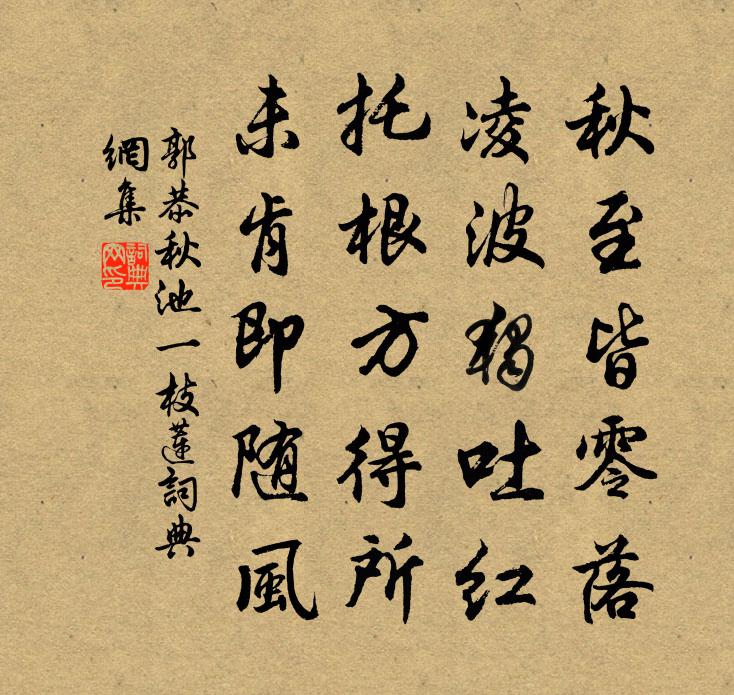 秋至皆零落
凌波独吐红
托根方得所
未肯即随風
郭恭秋池一枝蓮詞典
網集
詞典
网印